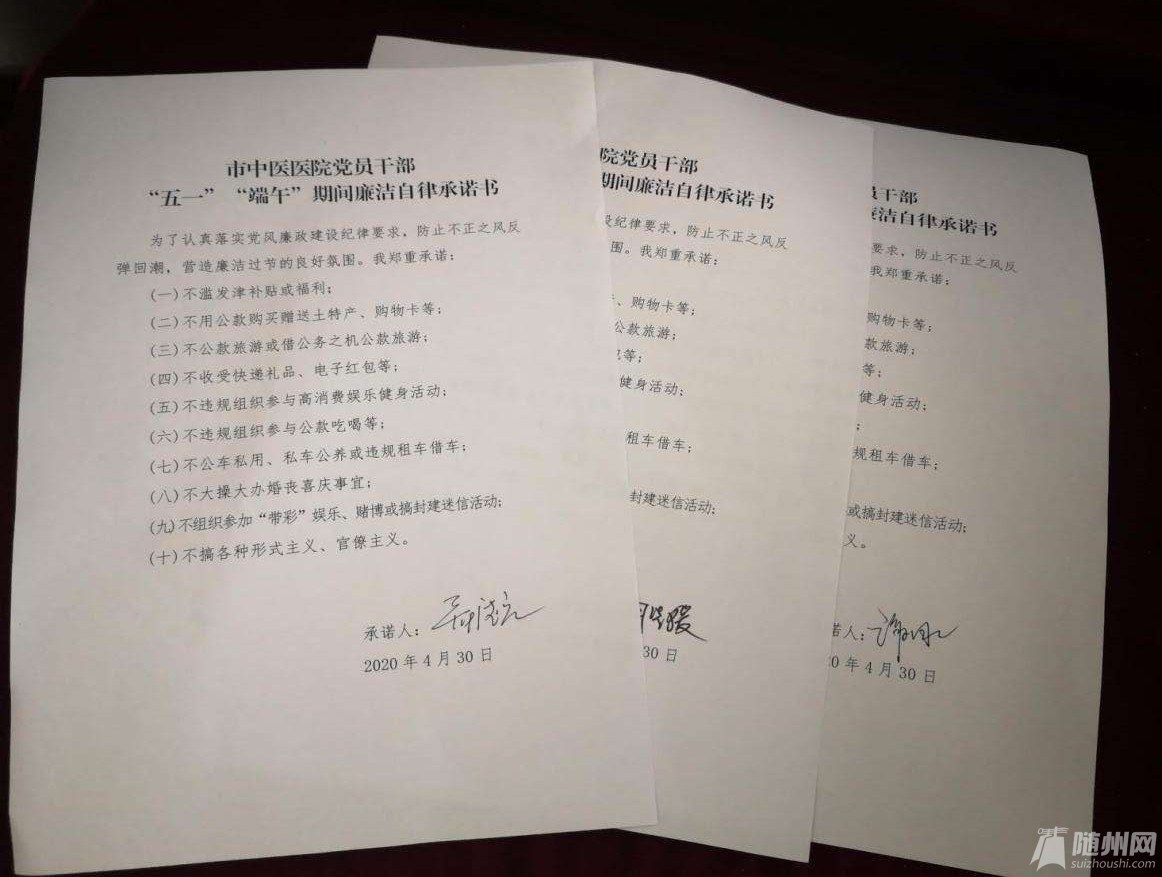 市中医医院党员干部
“五一”“端午”期间廉洁自律承诺书
为了认真落实党风廉政建设纪律要求，防止不正之风反
弹回潮，营造廉洁过节的良好氛围。我郑重承诺：
(一)不滥发津补贴或福利；
(二)不用公款购买赠送土特产、购物卡等；
(三)不公款旅游或借公务之机公款旅游；
(四)不收受快递礼品、电子红包等；
(五)不违规组织参与高消费娱乐健身活动；
(六)不违规组织参与公款吃喝等；
(七)不公车私用、私车公养或违规租车借车；
(八)不大操大办婚丧喜庆事宜；
(九)不组织参加“带彩”娱乐、赌博或搞封建迷信活动；
(十)不搞各种形式主义、官僚主义。
承诺人：
2020年4月30日
院党员干部
期间廉洁自律承诺书
设纪律要求，防止不正之风反
围。我郑重承诺：
、购物卡等；
公款旅游；
包等；
健身活动；
租车借车；
封建迷信活动；
30日
员干部
廉洁自律承诺书
要求，防止不正之风反
我郑重承诺：
购物卡等；
款旅游；
等；
健身活动；
；
规租车借车；
或搞封建迷信活动；
义。
诺人：
20年4月30日
随州网
suizhoushi.com